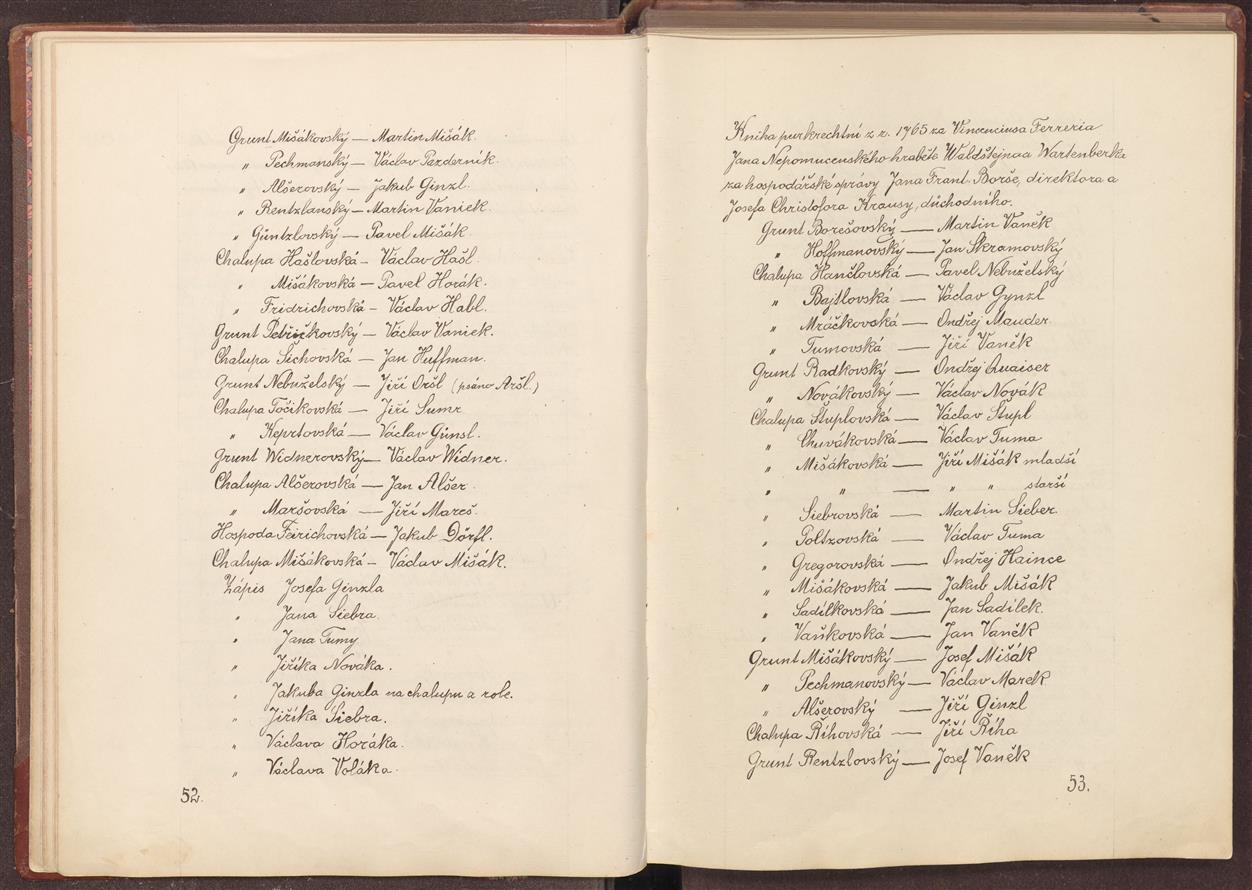 Grunt Mišákovský — Martin Mišák.
„ Pechmanský — Václav Pezderník.
„ Alšerovský — Jakub Ginzl.
„ Rentzlanský — Martin Vaniek.
„ Güntzlovský — Pavel Mišák
Chalupa Hašlovská — Václav Hašl.
„ Mišákovská — Pavel Horák.
„ Fridrichovská — Václav Habl.
Grunt Petřičkovský — Václav Vaniek.
Chalupa Šichovská — Jan Huffman.
Grunt Nebuželský — Jiří Oršl (psáno Aršl.)
Chalupa Točikovská — Jiří Sumr
„ Keprtovská — Václav Günsl.
Grunt Widnerovský — Václav Widner.
Chalupa Alšerovská — Jan Alšer.
„ Maršovská — Jiří Mareš.
Hospoda Feirichovská — Jakub Dörfl.
Chalupa Mišákovská — Václav Mišák.
Zápis Josefa Ginzla
„ Jana Siebra.
„ Jana Tumy
„ Jiříka Nováka.
„ Jakuba Ginzla na chalupu a role.
„ Jiříka Siebra.
„ Václava Horáka.
„ Václava Voláka.
52.
Kniha purkrechtní z r. 1765 za Vincenciusa Ferreria
Jana Nepomucenského hraběte Waldštejna a Wartenberka
za hospodářské správy Jana Frant. Borše, direktora a
Josefa Christofora Krausy, důchodního.
Grunt Borešovský — Martin Vaněk
„ Hoffmanovský — Jan Škramovský
Chalupa Hančlovská — Pavel Nebuželský
„ Bajtlovská — Václav Gynzl
„ Mráčkovská — Ondřej Mauder.
„ Tumovská — Jiří Vaněk
Grunt Radkovský — Ondřej Quaiser
„ Novákovský — Václav Novák
Chalupa Štuplovská — Václav Štupl
„ Chuvákovská — Václav Tuma
„ Mišákovská — Jiří Mišák mladší
„ „ — „ „ starší
„ Siebrovská — Martin Sieber.
„ Poltzovská — Václav Tuma
„ Gregorovská — Ondřej Haince
„ Mišákovská — Jakub Mišák
„ Sadílkovská — Jan Sadílek.
„ Vaňkovská — Jan Vaněk
Grunt Mišákovský — Josef Mišák
„ Pechmanovský — Václav Marek
„ Alšerovský — Jiří Ginzl
Chalupa Říhovská — Jiří Říha
Grunt Rentzlovský — Josef Vaněk
53.